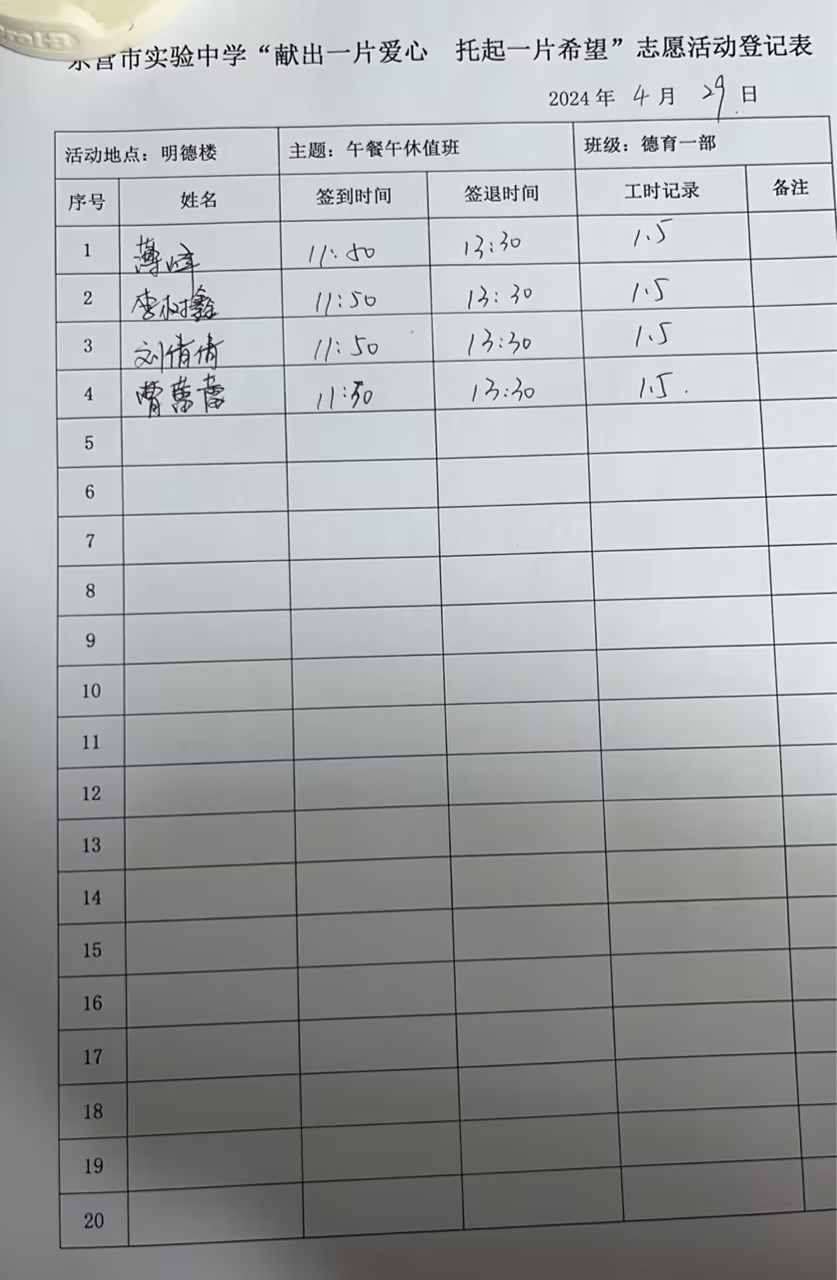 东营市实验中学“献出一片爱心 托起一片希望”志愿活动登记表
2024年 4月 29日
活动地点：明德楼 主题：午餐午休值班 班级：德育一部
序号 姓名 签到时间 签退时间 工时记录 备注
1 薄峰 11:50 13:30 1.5
2 李树鑫 11:50 13:30 1.5
3 刘倩倩 11:50 13:30 1.5
4 11:50 13:30 1.5
5
6
7
8
9
10
11
12
13
14
15
16
17
18
19
20